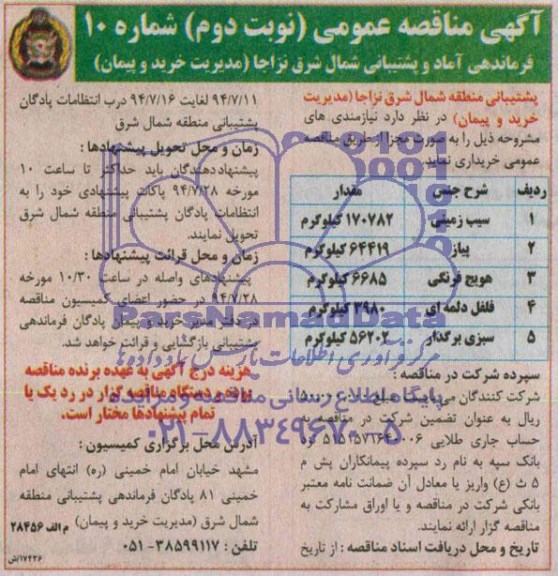 آگهی مناقصه عمومی (نوبت دوم) شماره ۱۰
فرماندهی آماد و پشتیبانی شمال شرق نزاجا (مدیریت خرید و پیمان)
پشتیبانی منطقه شمال شرق نزاجا (مدیریت
خرید و پیمان) در نظر دارد نیازمندی های
مشروحه ذیل را به صورت مجزا از طریق مناقصه
عمومی خریداری نماید.
ردیف شرح جنس مقدار
۱ سیب زمینی ۱۷۰۷۸۲ کیلوگرم
۲ پیاز ۶۴۴۱۹ کیلوگرم
۳ هویج فرنگی ۶۶۸۵ کیلوگرم
۴ فلفل دلمه ای ۳۹۸۰ کیلوگرم
۵ سبزی برگدار ۵۶۲۰۲ کیلوگرم
سپرده شرکت در مناقصه :
شرکت کنندگان می بایست مبلغ
ریال به عنوان تضمین شرکت در مناقصه به
حساب جاری طلایی کد
بانک سپه به نام رد سپرده پیمانکاران پش م
۵ ث (ع) واریز یا معادل آن ضمانت نامه معتبر
بانکی شرکت در مناقصه و یا اوراق مشارکت به
مناقصه گزار ارائه نمایند.
تاریخ و محل دریافت اسناد مناقصه : از تاریخ
۹۴/۷/۱۱ لغایت ۹۴/۷/۱۶ درب انتظامات پادگان
پشتیبانی منطقه شمال شرق
زمان و محل تحویل پیشنهادها :
پیشنهاددهندگان باید حداکثر تا ساعت ۱۰
مورخه ۹۴/۷/۲۸ پاکات پیشنهادی خود را به
انتظامات پادگان پشتیبانی منطقه شمال شرق
تحویل نمایند.
زمان و محل قرائت پیشنهادها :
پیشنهادهای واصله در ساعت ۱۰/۳۰ مورخه
۹۴/۷/۲۸ در حضور اعضای کمیسیون مناقصه
در دفتر مدیر خرید و پیمان پادگان فرماندهی
پشتیبانی بازگشایی و قرائت خواهد شد.
هزینه درج آگهی به عهده برنده مناقصه
بوده و دستگاه مناقصه گزار در رد یک یا
تمام پیشنهادها مختار است.
آدرس محل برگزاری کمیسیون :
مشهد خیابان امام خمینی (ره) انتهای امام
خمینی ۸۱ پادگان فرماندهی پشتیبانی منطقه
شمال شرق (مدیریت خرید و پیمان) م الف ۲۸۴۵۶
تلفن : ۳۸۵۹۹۱۱۷-۰۵۱
۱۷۴۲۶/ش
ParsNamadData
مرکز فرآوری اطلاعات پارس نماد داده ها
پایگاه اطلاع رسانی مناقصه و مزایده
۰۲۱-۸۸۳۴۹۶۷۰-۵